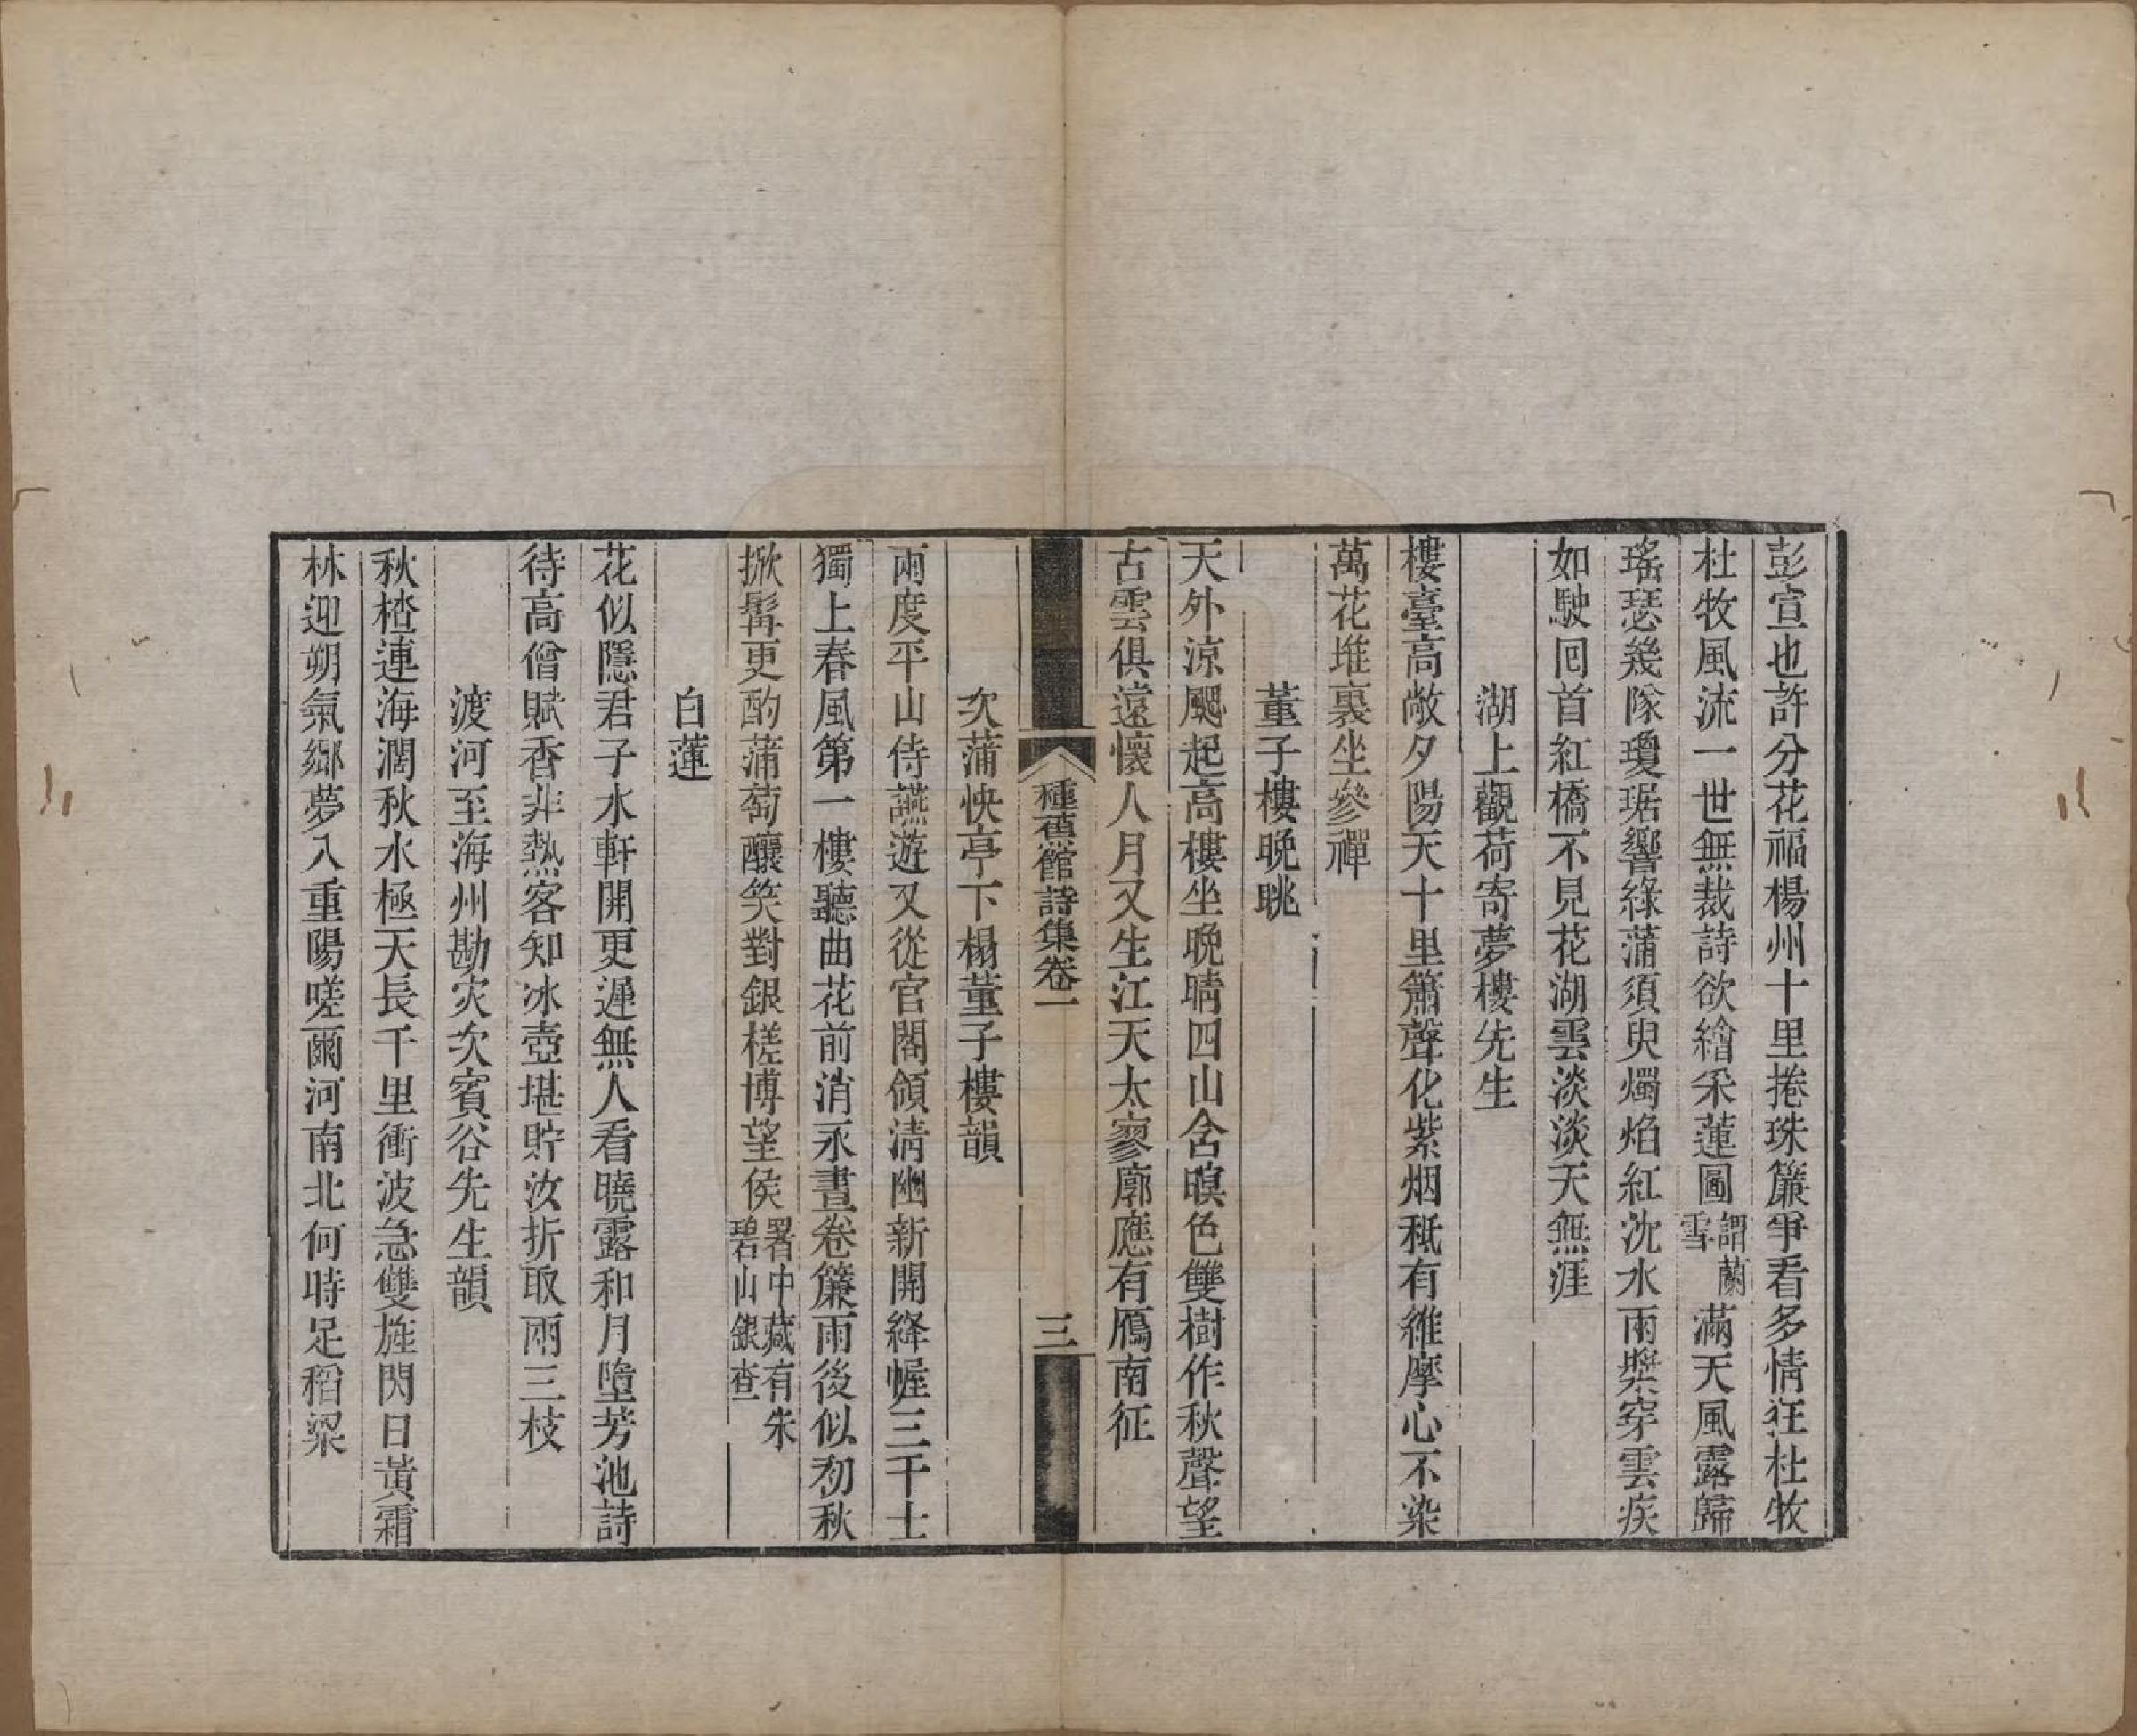 彭宣也許分花福楊州十里捲珠簾爭看多情狂杜牧
杜牧風流一世無裁詩欲繪采蓮圖謂蘭雪滿天風露歸
瑤瑟幾隊瓊琚響綠蒲須臾燭焰紅沈水雨槳穿雲疾
如駛回首紅橋不見花湖雲淡淡天無涯
湖上觀荷寄夢樓先生
樓臺高敞夕陽天十里簫聲化紫烟秪有維摩心不染
萬花堆裏坐參禪
董子樓晚眺
天外涼颸起高樓坐晚晴四山含暝色雙樹作秋聲望
古雲俱遠懷人月又生江天太寥廓應有鴈南征
種蕉館詩集卷一
三
次蒲快亭下榻董子樓韻
兩度平山侍讌遊又從官閣領淸幽新開絳幄三千士
獨上春風第一樓聽曲花前消永晝卷簾雨後似初秋
掀髯更酌蒲萄釀笑對銀槎博望侯署中藏有朱碧山銀查
白蓮
花似隱君子水軒開更遲無人看曉露和月墮芳池詩
待高僧賦香非熱客知冰壺堪貯汝折取兩三枝
渡河至海州勘灾次賓谷先生韻
秋楂連海濶秋水極天長千里衝波急雙旌閃日黃霜
林迎朔氣鄉夢入重陽嗟爾河南北何時足稻粱